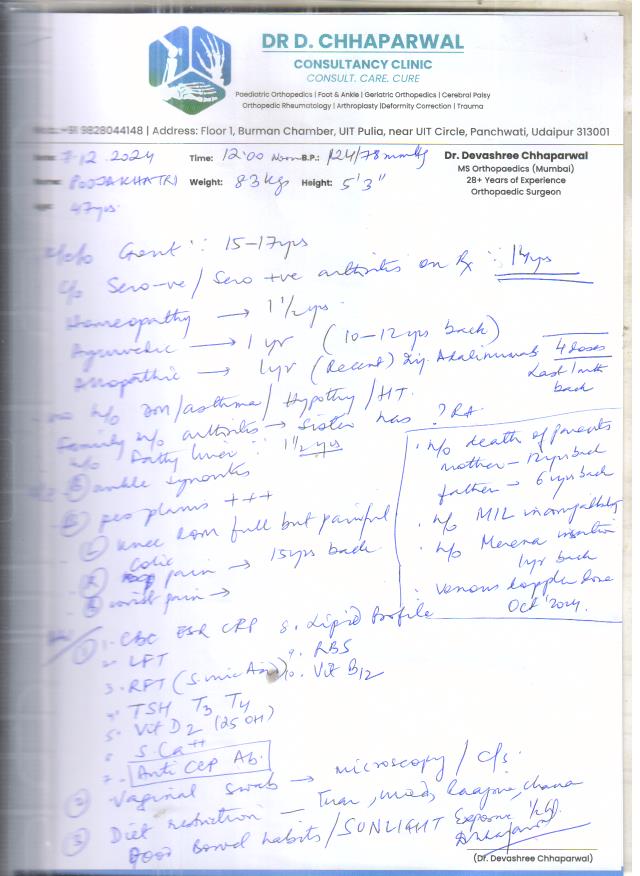 DR D. CHHAPARWAL
CONSULTANCY CLINIC
CONSULT. CARE. CURE
Paediatric Orthopedics | Foot & Ankle | Geriatric Orthopedics | Cerebral Palsy
Orthopedic Rheumatology | Arthroplasty | Deformity Correction | Trauma
+91 9828044148 | Address: Floor 1, Burman Chamber, UIT Pulia, near UIT Circle, Panchwati, Udaipur 313001
7.12.2024 Time: 12:00 Noon B.P.: 124/78 mmHg
POOJA KHATRI Weight: 83 kgs Height: 5'3"
47 yrs.
Dr. Devashree Chhaparwal
MS Orthopaedics (Mumbai)
28+ Years of Experience
Orthopaedic Surgeon
Gout : 15-17 yrs
Sero-ve / Sero +ve arthritis on Rx : 14 yrs
Homeopathy → 1 1/2 yrs.
Ayurvedic → 1 yr (10-12 yrs back)
Allopathic → 1 yr (Recent) Inj. Adalimumab 4 doses
Last 1 mth back
h/o DM/asthma/Hypothy/HT.
Family h/o arthritis → Sister has ? RA
h/o Fatty liver : 1 1/2 yrs
ankle synovitis
pes planus +++
knee rom full but painful
pain → 15 yrs back
wrist pain →
. h/o death of parents
mother - 12 yrs back
father → 6 yrs back
. h/o MIL incompatibility
. h/o Merena insertion
1 yr back
. venous doppler done
Oct '2024.
1 1. CBC ESR CRP 8. Lipid Profile
2. LFT 9. RBS
3. RFT (S. Uric Acid) 10. Vit B12
4. TSH T3 T4
5. Vit D2 (25 OH)
6 S. Ca++
7. Anti CCP Ab.
2 Vaginal Swab → microscopy / c/s.
3 Diet restriction - Tuar, , Raajma, chana
Good Bowel habits / SUNLIGHT Exposure
(Dr. Devashree Chhaparwal)